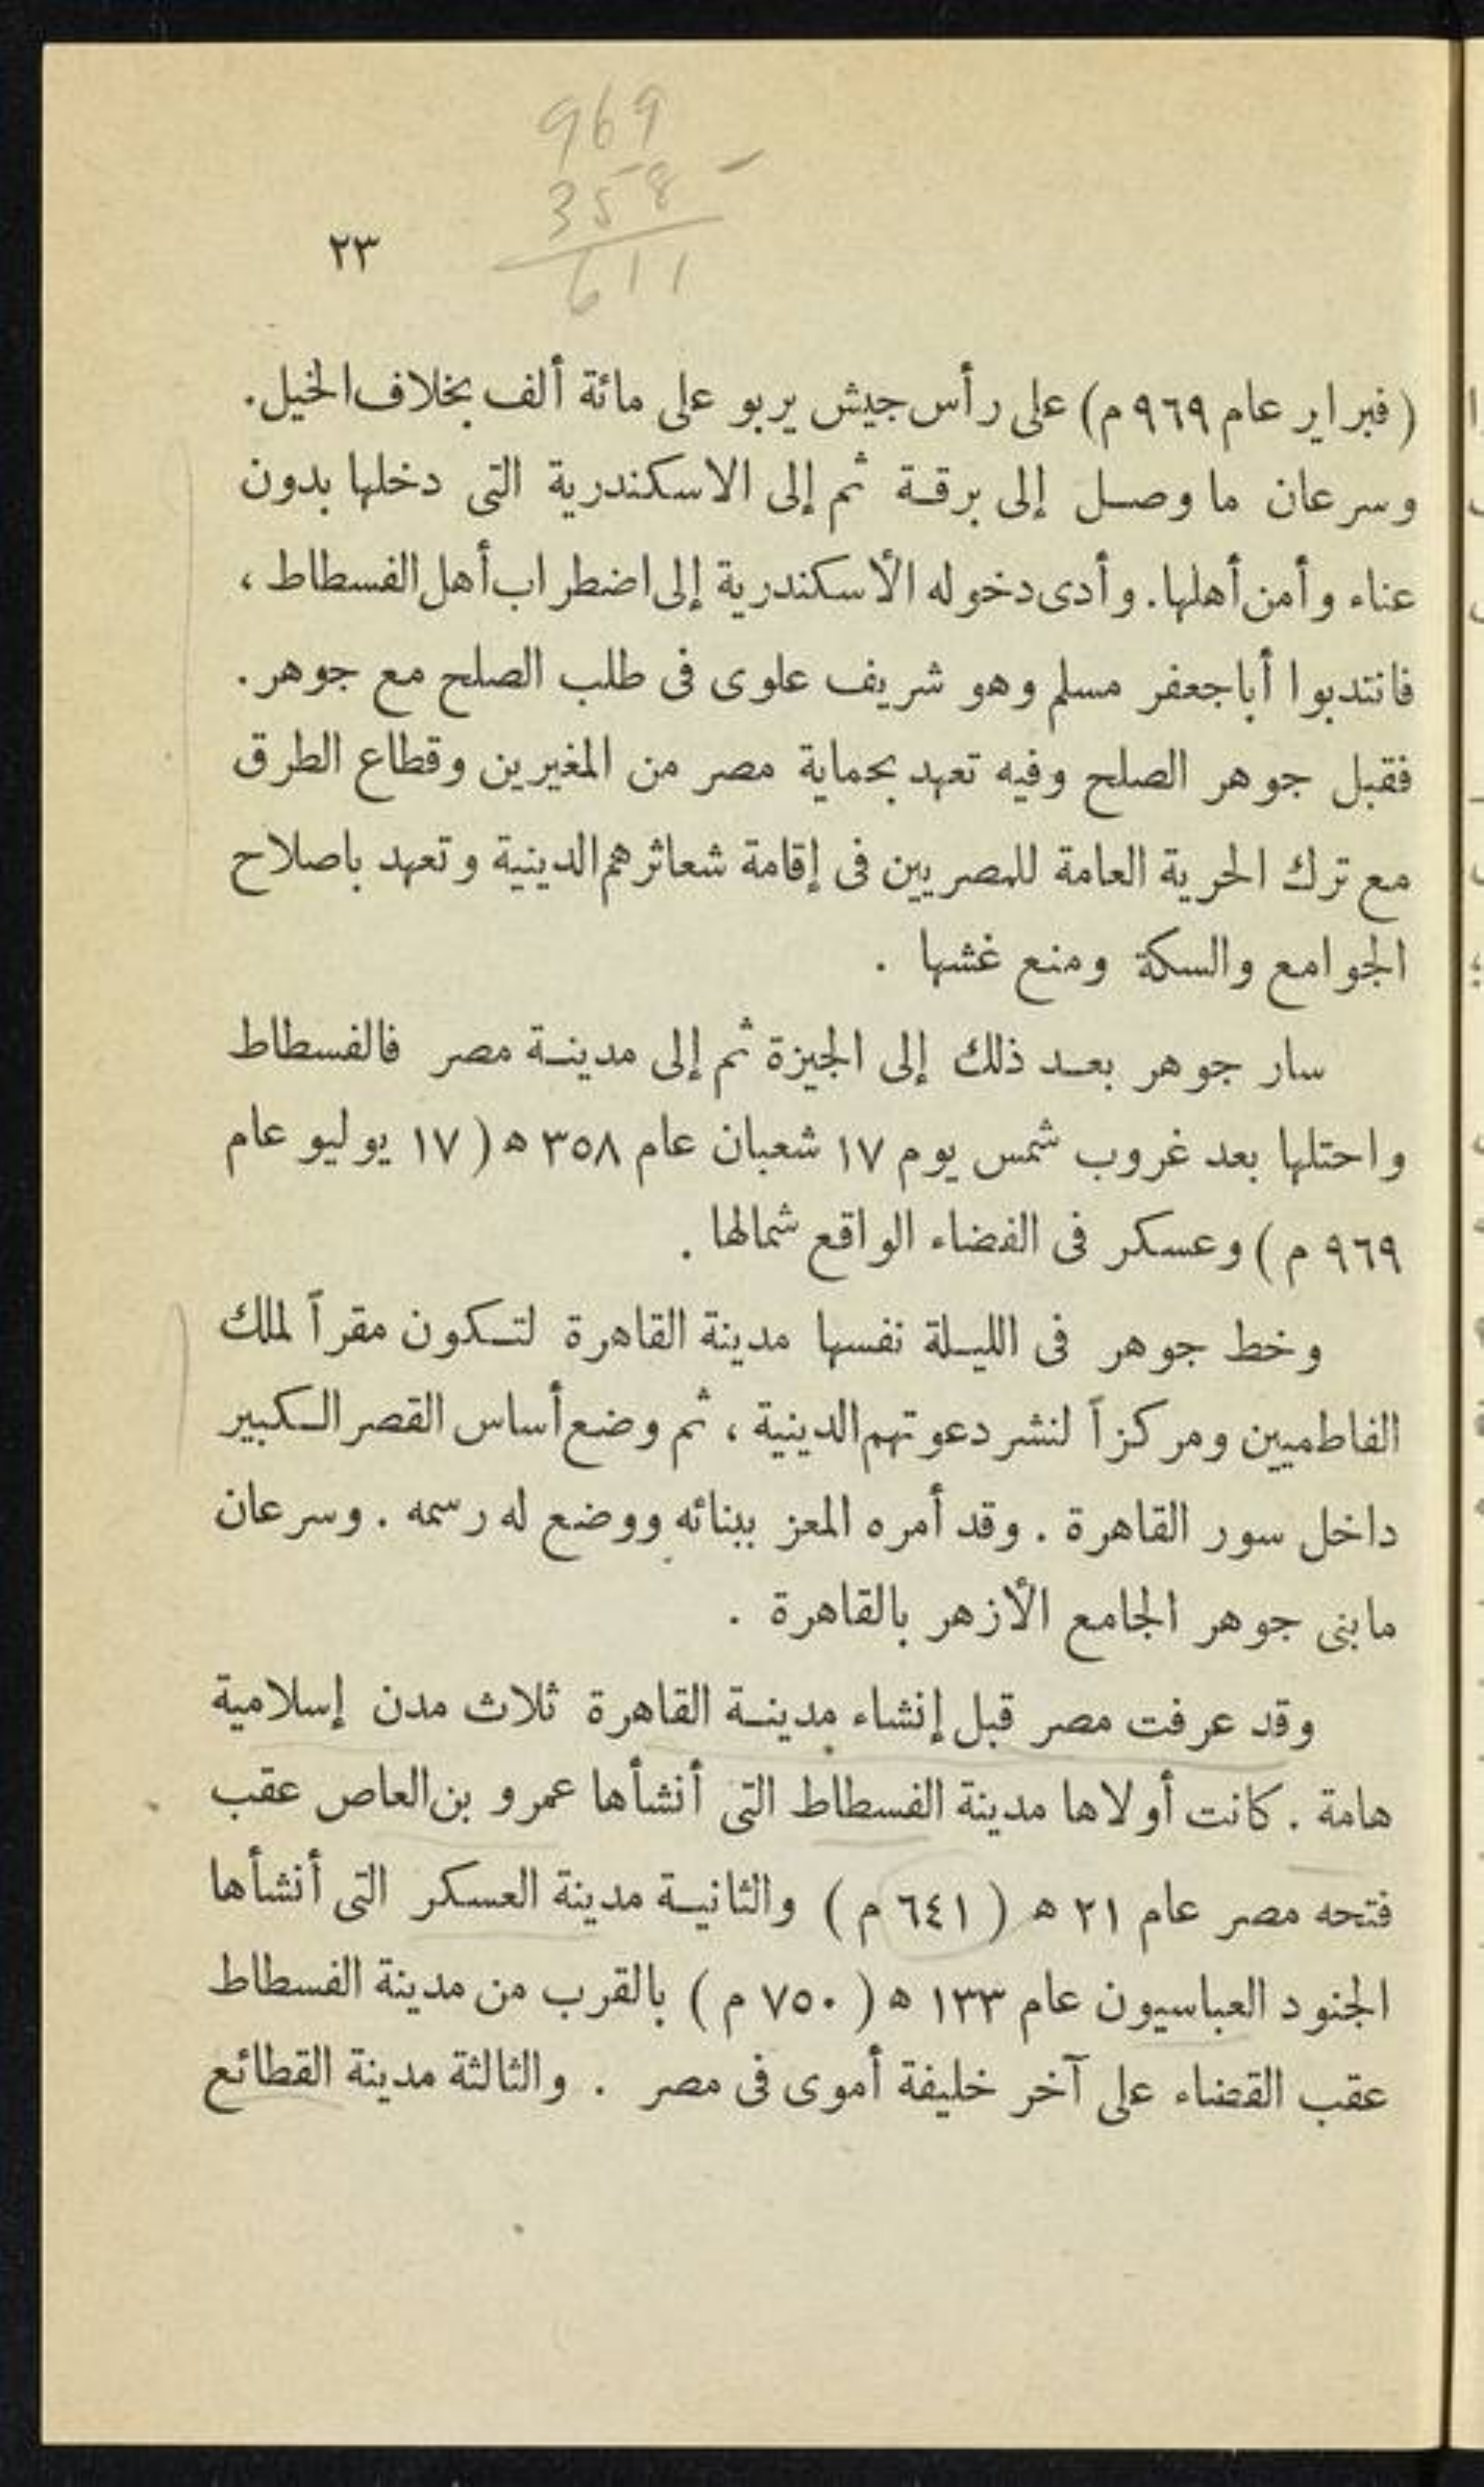 969
358 -
611
٢٣
( فبراير عام ٩٦٩ م) على رأس جيش يربو على مائة ألف بخلاف الخيل.
وسرعان ما وصل إلى برقة ثم إلى الاسكندرية التى دخلها بدون
عناء وأمن أهلها. وأدى دخوله الأسكندرية إلى اضطراب أهل الفسطاط ،
فانتدبوا أبا جعفر مسلم وهو شريف علوى فى طلب الصلح مع جوهر.
فقبل جوهر الصلح وفيه تعهد بحماية مصر من المغيرين وقطاع الطرق
مع ترك الحرية العامة للمصريين فى إقامة شعائرهم الدينية وتعهد باصلاح
الجوامع والسكة ومنع غشها .
سار جوهر بعد ذلك إلى الجيزة ثم إلى مدينة مصر فالفسطاط
واحتلها بعد غروب شمس يوم ١٧ شعبان عام ٣٥٨ ه ( ١٧ يوليو عام
٩٦٩ م ) وعسكر فى الفضاء الواقع شمالها .
وخط جوهر فى الليلة نفسها مدينة القاهرة لتكون مقراً لملك
الفاطميين ومركزاً لنشر دعوتهم الدينية ، ثم وضع أساس القصر الكبير
داخل سور القاهرة . وقد أمره المعز ببنائه ووضع له رسمه . وسرعان
مابنى جوهر الجامع الأزهر بالقاهرة .
وقد عرفت مصر قبل إنشاء مدينة القاهرة ثلاث مدن إسلامية
هامة . كانت أولاها مدينة الفسطاط التى أنشأها عمرو بن العاص عقب
فتحه مصر عام ٢١ ه ( ٦٤١ م ) والثانية مدينة العسكر التى أنشأها
الجنود العباسيون عام ١٣٣ ه ( ٧٥٠ م ) بالقرب من مدينة الفسطاط
عقب القضاء على آخر خليفة أموى فى مصر . والثالثة مدينة القطائع